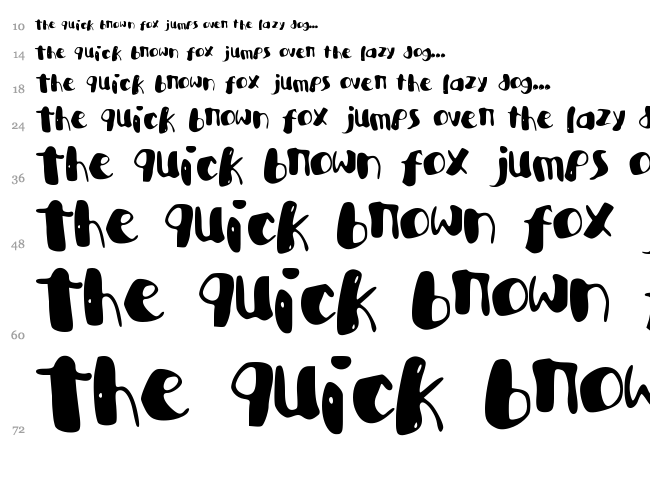 10 the quick brown fox jumps over the lazy dog...
14 the quick brown fox jumps over the lazy dog...
18 the quick brown fox jumps over the lazy dog...
24 the quick brown fox jumps over the lazy
36 the quick brown fox jumps
48 the quick brown fox
60 the quick brown
72 the quick brow